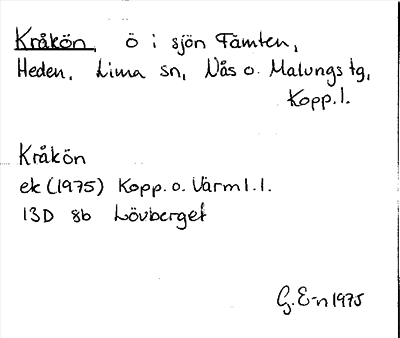 Kråkön, ö i sjön Tämten,
Heden, Lima sn, Nås o. Malungs tg,
Kopp.l.
Kråkön
ek (1975) Kopp. o. Värml.l.
13D 8b Lövberget
G. E-n 1975